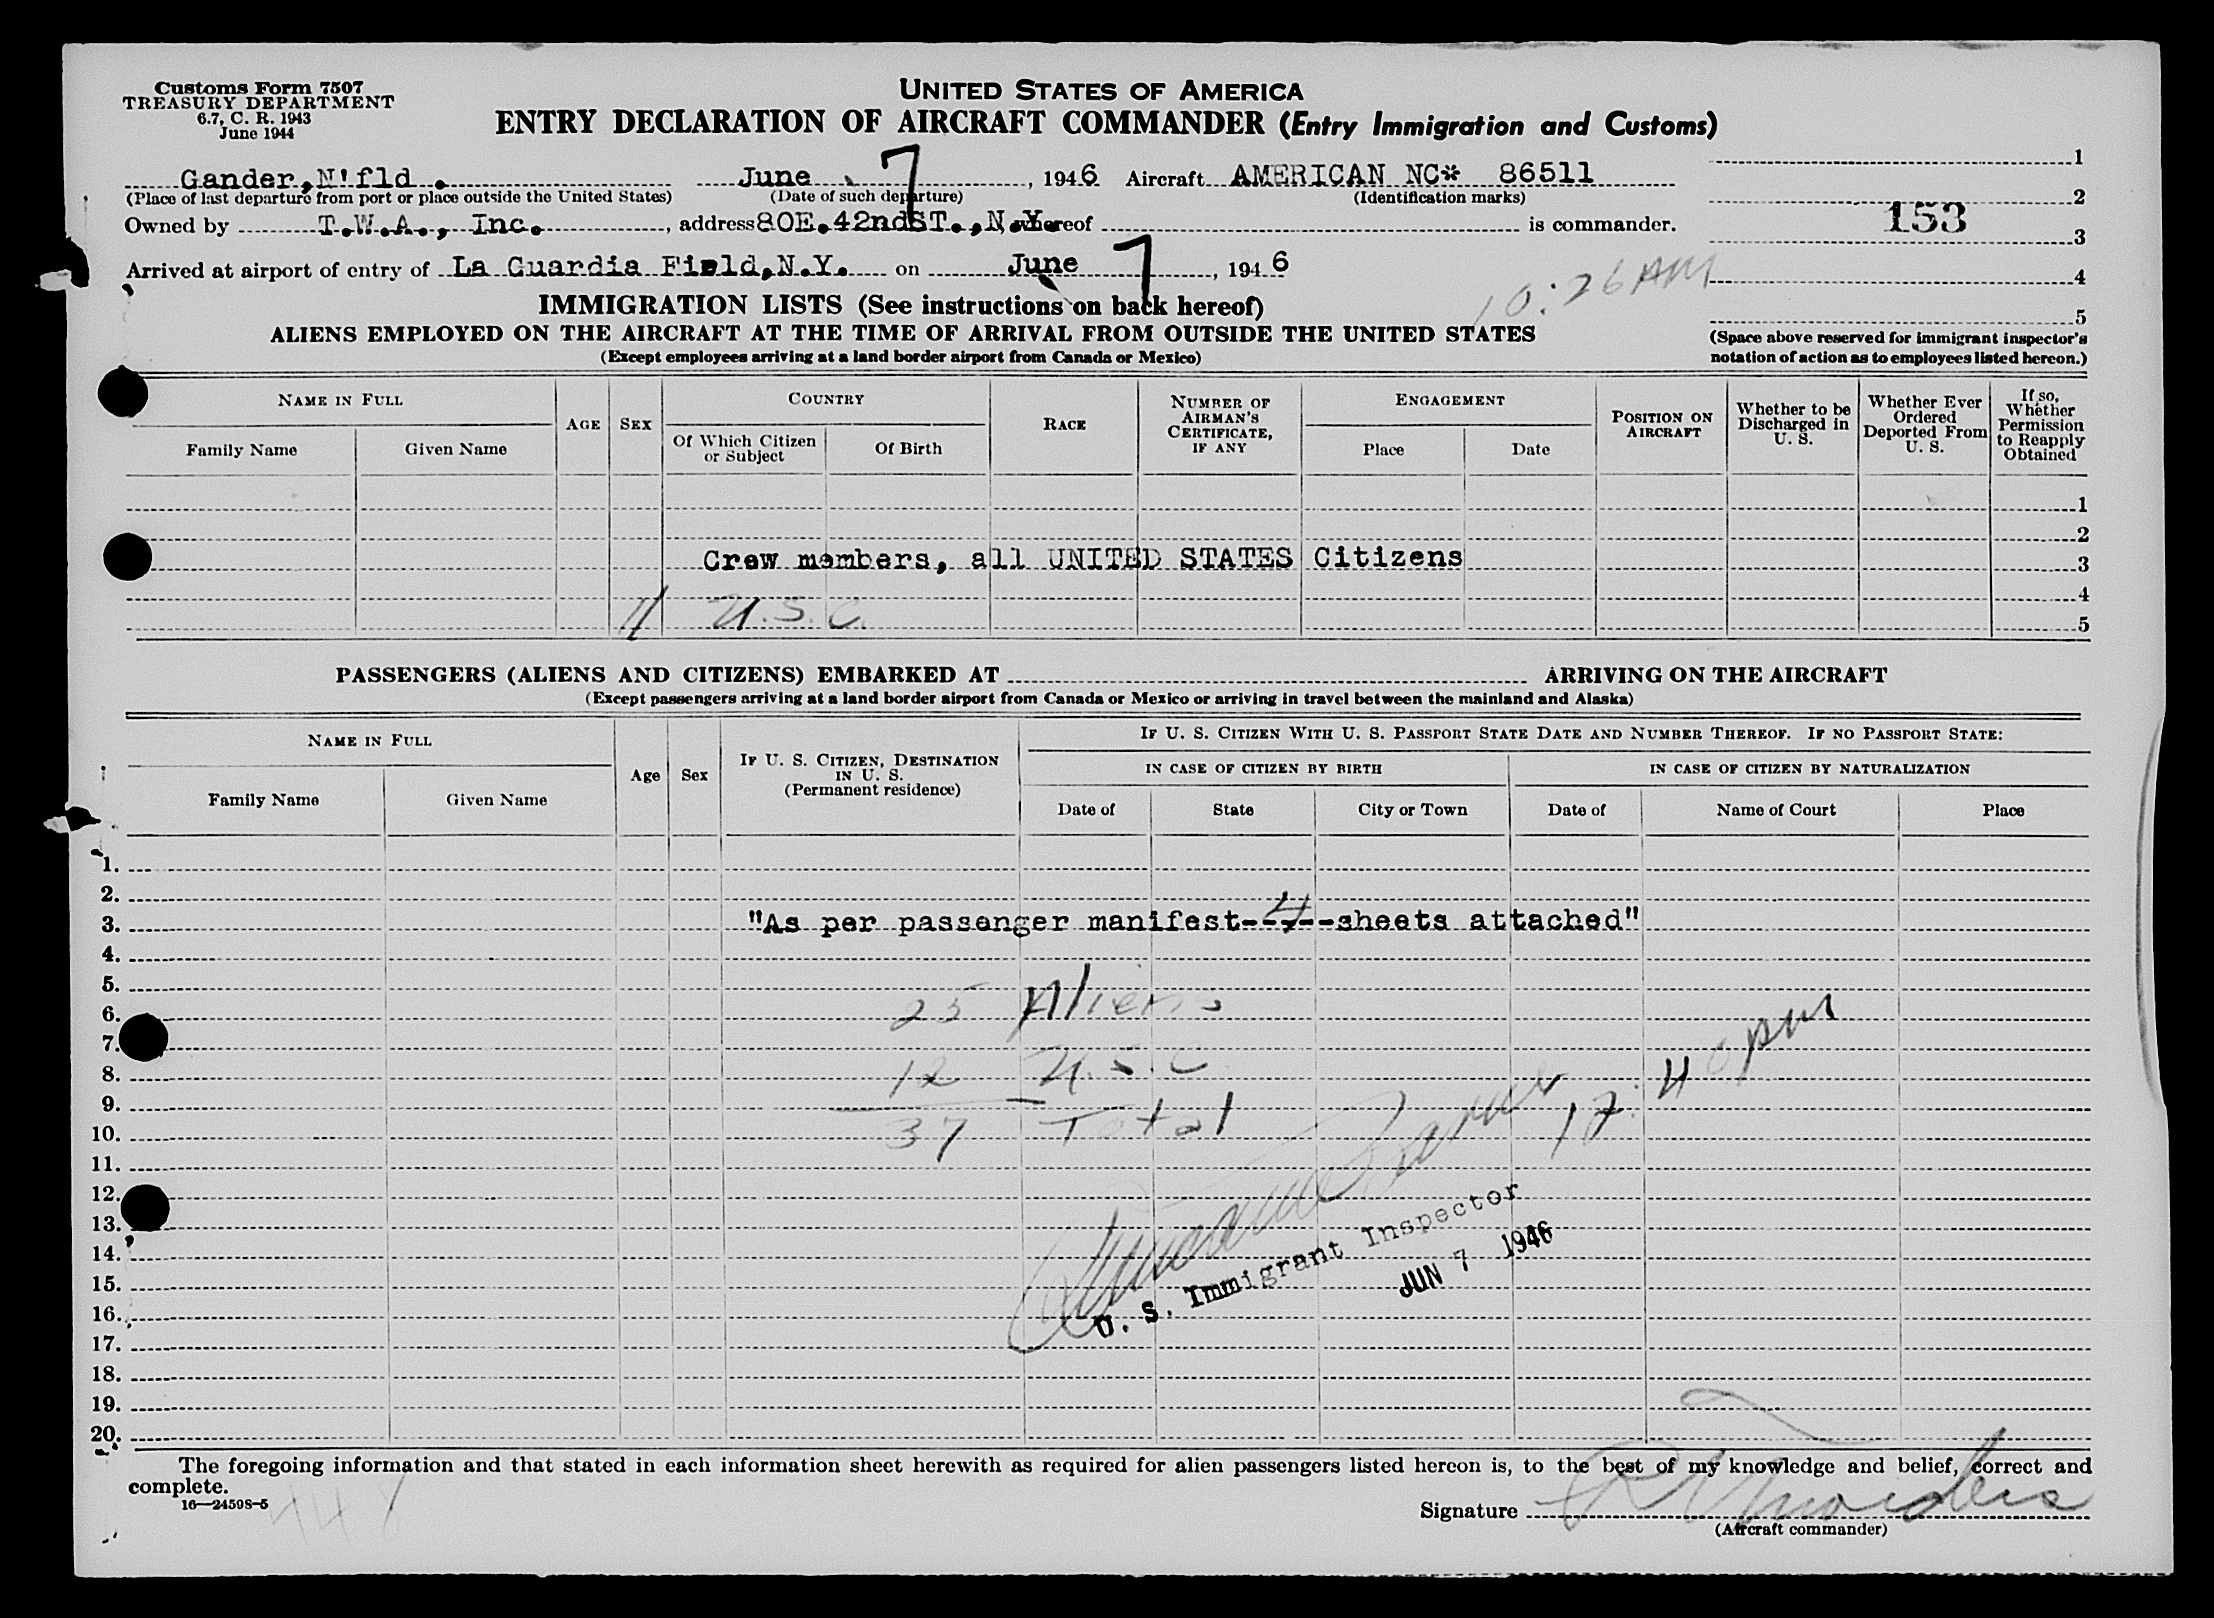 Customs Form 7507
TREASURY DEPARTMENT
6.7, C. R. 1943
June 1944
UNITED STATES OF AMERICA
ENTRY DECLARATION OF AIRCRAFT COMMANDER (Entry Immigration and Customs)
Gander,N'fld. June 7, 1946 Aircraft AMERICAN NC* 86511
(Place of last departure from port or place outside the United States) (Date of such departure) (Identification marks)
Owned by T.W.A., Inc., address 80E.42ndST.,N.Y. whereof is commander.
Arrived at airport of entry of La Guardia Field,N.Y. on June 7, 1946
1
2
153
3
4
5
10:26 AM
(Space above reserved for immigrant inspector's
notation of action as to employees listed hereon.)
IMMIGRATION LISTS (See instructions on back hereof)
ALIENS EMPLOYED ON THE AIRCRAFT AT THE TIME OF ARRIVAL FROM OUTSIDE THE UNITED STATES
(Except employees arriving at a land border airport from Canada or Mexico)
NAME IN FULL
Family Name Given Name
AGE SEX
COUNTRY
Of Which Citizen or Subject Of Birth
RACE
NUMBER OF AIRMAN'S CERTIFICATE, IF ANY
ENGAGEMENT
Place Date
POSITION ON AIRCRAFT
Whether to be Discharged in U. S.
Whether Ever Ordered Deported From U. S.
If so, Whether Permission to Reapply Obtained
1
2
Crew members, all UNITED STATES Citizens 3
4
11 U.S.C. 5
PASSENGERS (ALIENS AND CITIZENS) EMBARKED AT ARRIVING ON THE AIRCRAFT
(Except passengers arriving at a land border airport from Canada or Mexico or arriving in travel between the mainland and Alaska)
NAME IN FULL
Family Name Given Name
Age Sex
IF U. S. CITIZEN, DESTINATION IN U. S.
(Permanent residence)
IF U. S. CITIZEN WITH U. S. PASSPORT STATE DATE AND NUMBER THEREOF. IF NO PASSPORT STATE:
IN CASE OF CITIZEN BY BIRTH IN CASE OF CITIZEN BY NATURALIZATION
Date of State City or Town Date of Name of Court Place
1.
2.
3. "As per passenger manifest--4--sheets attached"
4.
5.
6. 25 Aliens
7.
8. 12 U.S.C
9.
10. 37 Total
12:40 pm
11.
12.
13.
14.
15.
16.
U. S. Immigrant Inspector
JUN 7 1946
17.
18.
19.
20.
The foregoing information and that stated in each information sheet herewith as required for alien passengers listed hereon is, to the best of my knowledge and belief, correct and
complete.
16—24598-5
Signature
(Aircraft commander)